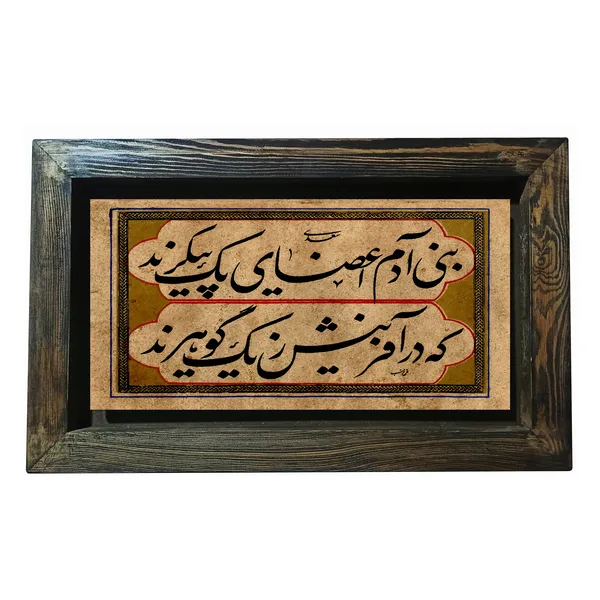 بنی آدم اعضای یک پیکرند
سعدی
که در آفرینش ز یک گوهرند